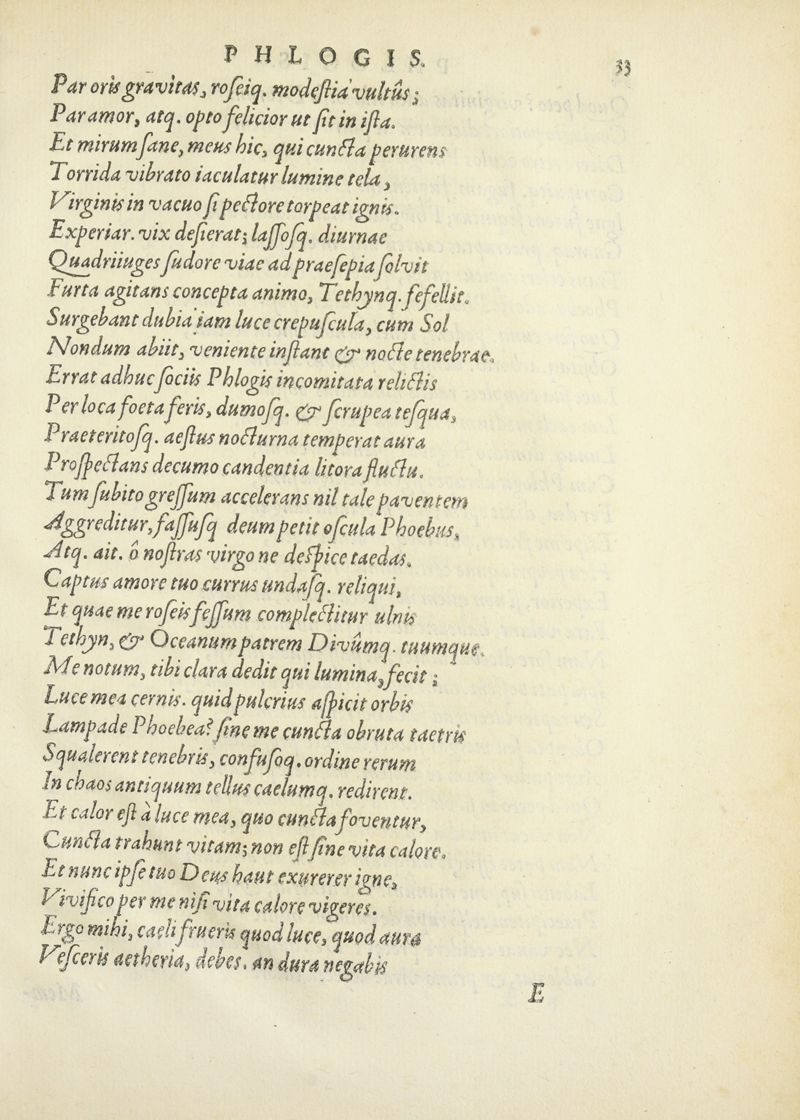 PHLOGIS.
33
Par oris gravitas, roseiq. modestia vultûs;
Par amor, atq. opto felicior ut sit in ista.
Et mirum sane, meus hic, qui cuncta perurens
Torrida vibrato iaculatur lumine tela,
Virginis in vacuo si pectore torpeat ignis.
Experiar. vix desierat; lassosq. diurnae
Quadriiuges sudore viae ad praesepia solvit
Furta agitans concepta animo, Tethynq. fefellit.
Surgebant dubia iam luce crepuscula, cum Sol
Nondum abiit, veniente instant & nocte tenebrae.
Errat adhuc sociis Phlogis incomitata relictis
Per loca foeta feris, dumosq. & scrupea tesqua,
Praeteritosq. aestus nocturna temperat aura
Prospectans decumo candentia litora fluctu.
Tum subito gressum accelerans nil tale paventem
Aggreditur, fassusq deum petit oscula Phoebus,
Atq. ait. ô nostras virgo ne despice taedas.
Captus amore tuo currus undasq. reliqui,
Et quae me roseis fessum complectitur ulnis
Tethyn, & Oceanum patrem Divûmq. tuumque.
Me notum, tibi clara dedit qui lumina, fecit;
Luce mea cernis. quid pulcrius aspicit orbis
Lampade Phoebea? sine me cuncta obruta taetris
Squalerent tenebris, confusoq. ordine rerum
In chaos antiquum tellus caelumq. redirent.
Et calor est à luce mea, quo cuncta foventur,
Cuncta trahunt vitam; non est sine vita calore.
Et nunc ipse tuo Deus haut exurerer igne,
Vivifico per me nisi vita calore vigeres.
Ergo mihi, caeli frueris quod luce, quod aura
Vesceris aetheria, debes. an dura negabis
E